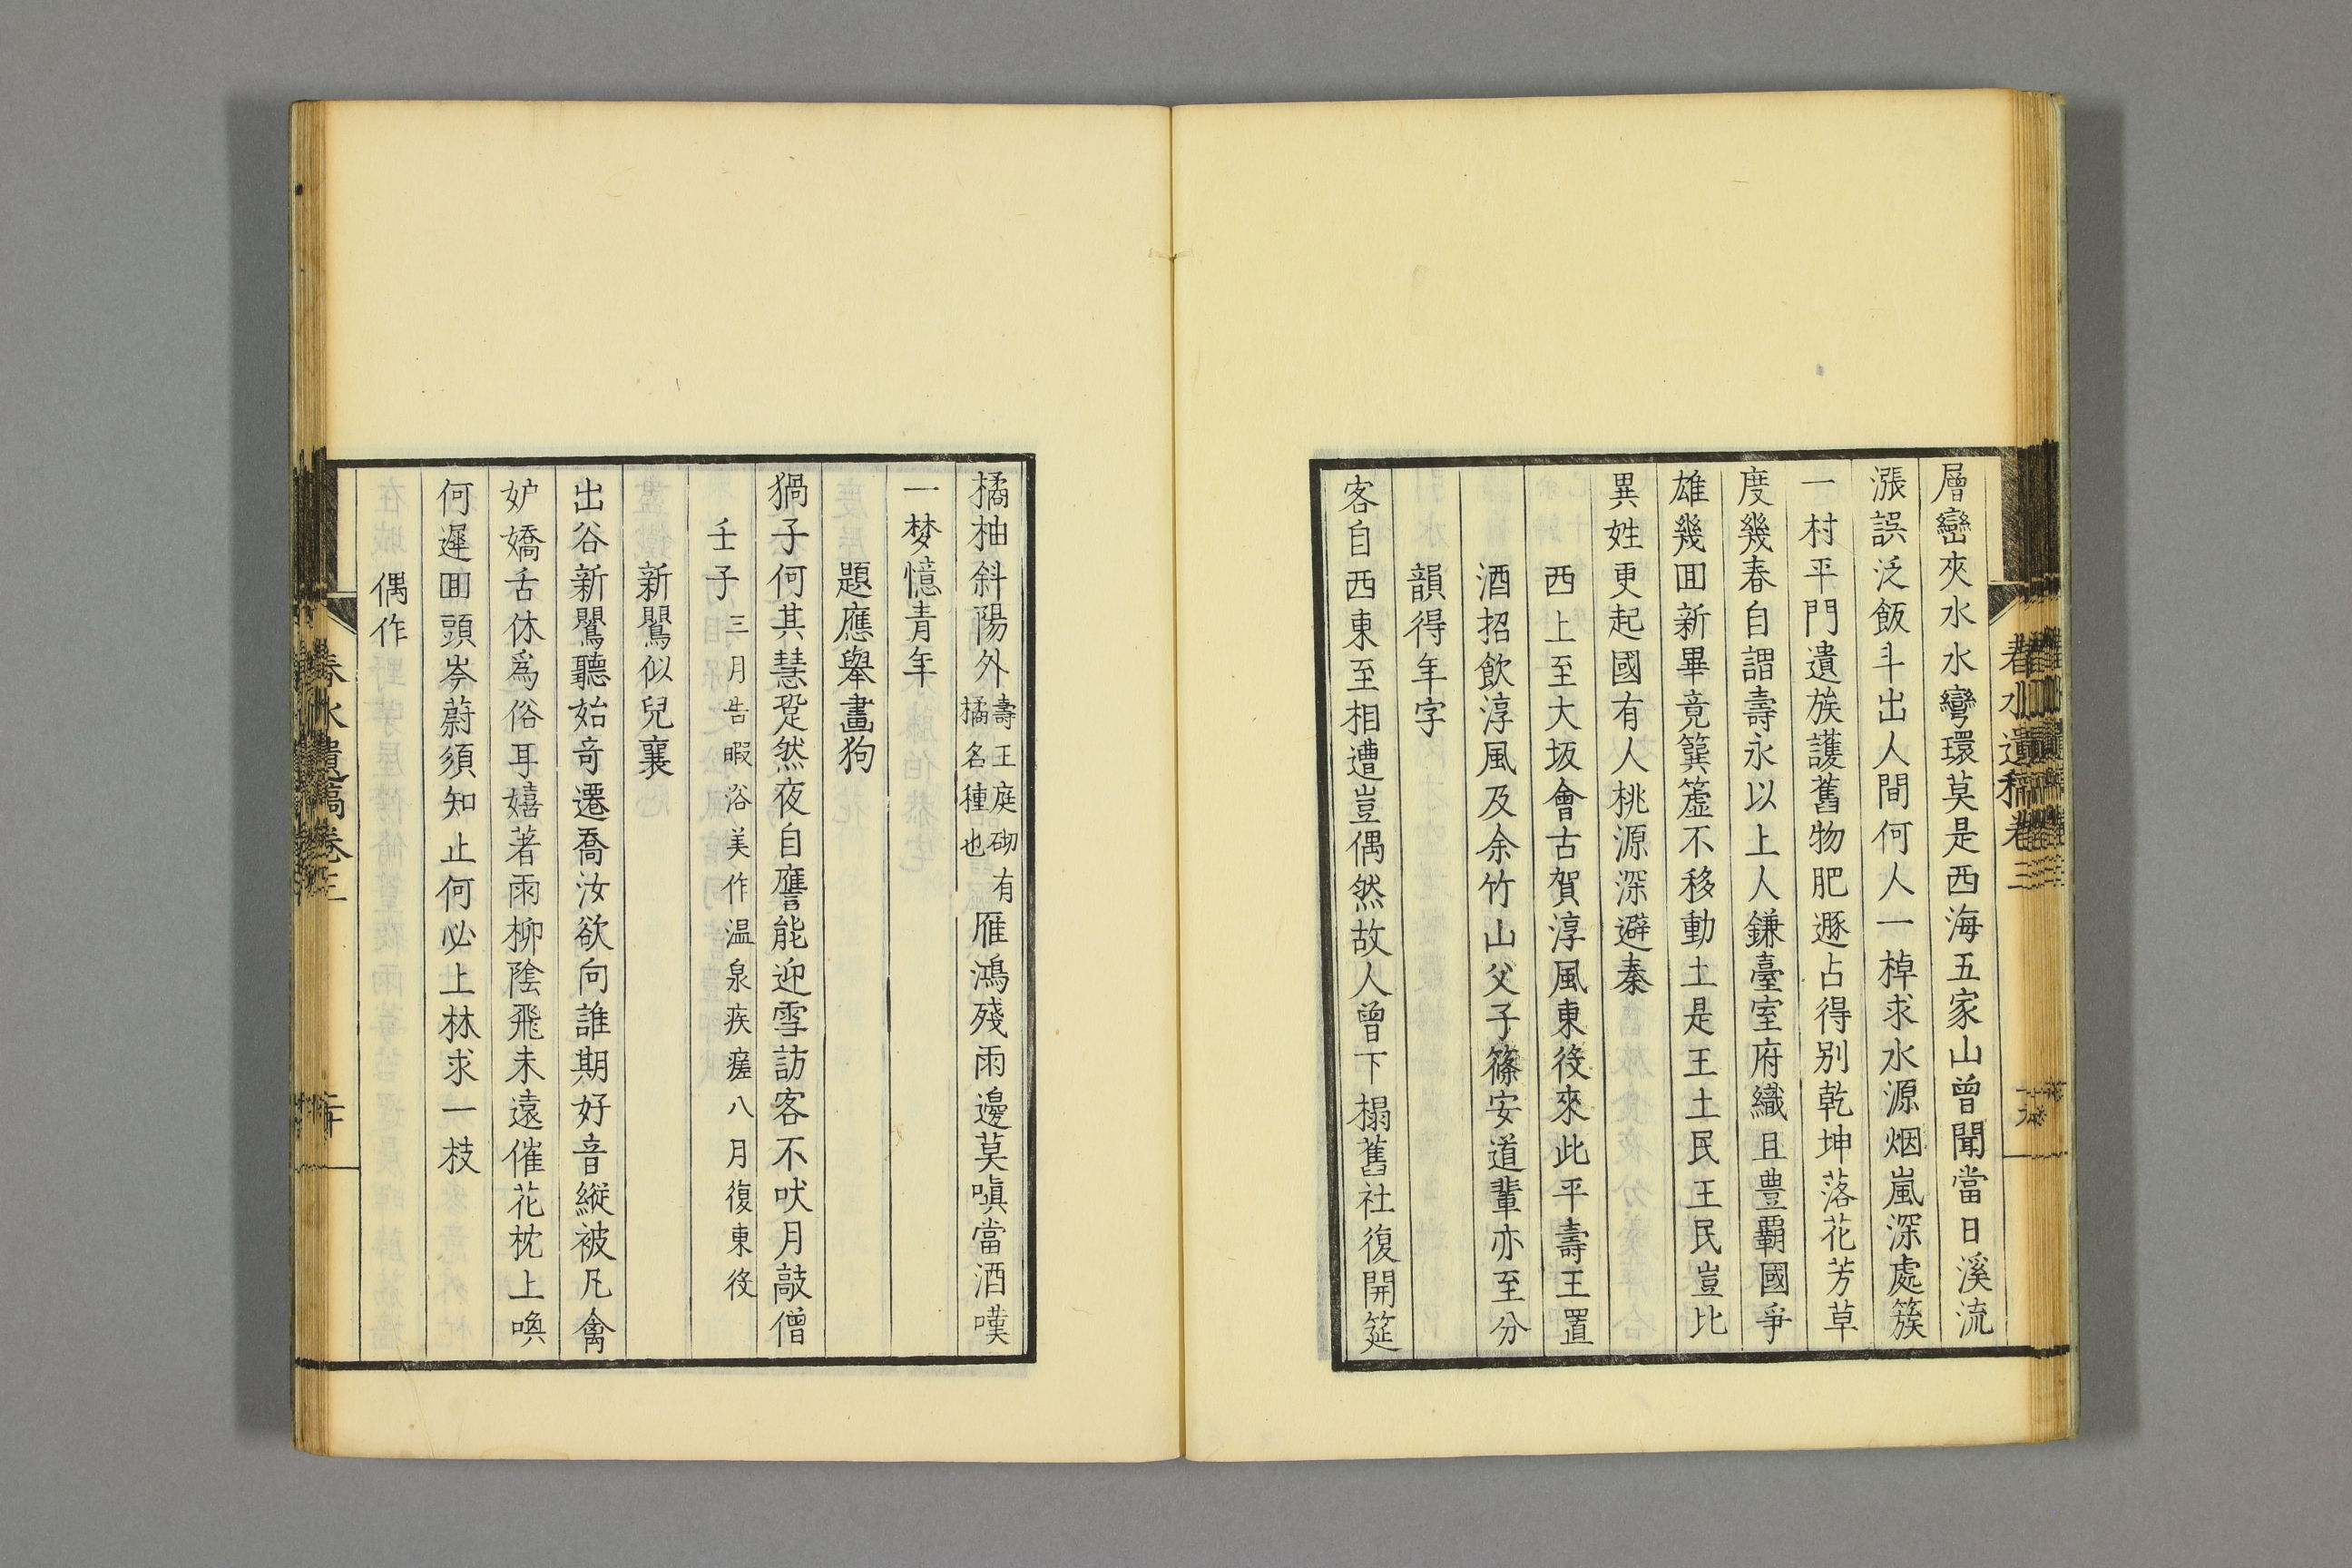 層巒夾水水彎環莫是西海五家山曾聞當日溪流
漲誤泛飯斗出人間何人一棹求水源烟嵐深處簇
一村平門遺族護舊物肥遯占得別乾坤落花芳草
度幾春自謂壽永以上人鎌臺室府織且豊覇國爭
雄幾囬新畢竟簨簴不移動土是王土民王民豈比
異姓更起國有人桃源深避秦
西上至大坂會古賀淳風東役來此平壽王置
酒招飲淳風及余竹山父子篠安道輩亦至分
韻得年字
客自西東至相遭豈偶然故人曾下榻舊社復開筵
春水遺稿卷三
十九
橘柚斜陽外壽王庭砌有橘名種也雁鴻殘雨邊莫嗔當酒嘆
一梦憶青年
題應舉畫狗
猧子何其慧跫然夜自譍能迎雪訪客不吠月敲僧
壬子三月告暇浴美作温泉疾瘥八月復東役
新鸎似兒襄
出谷新鸎聽始竒遷喬汝欲向誰期好音縦被凡禽
妒嬌舌休爲俗耳嬉著雨柳陰飛未遠催花枕上喚
何遲囬頭岑蔚須知止何必上林求一枝
偶作
春水遺稿卷三
二十